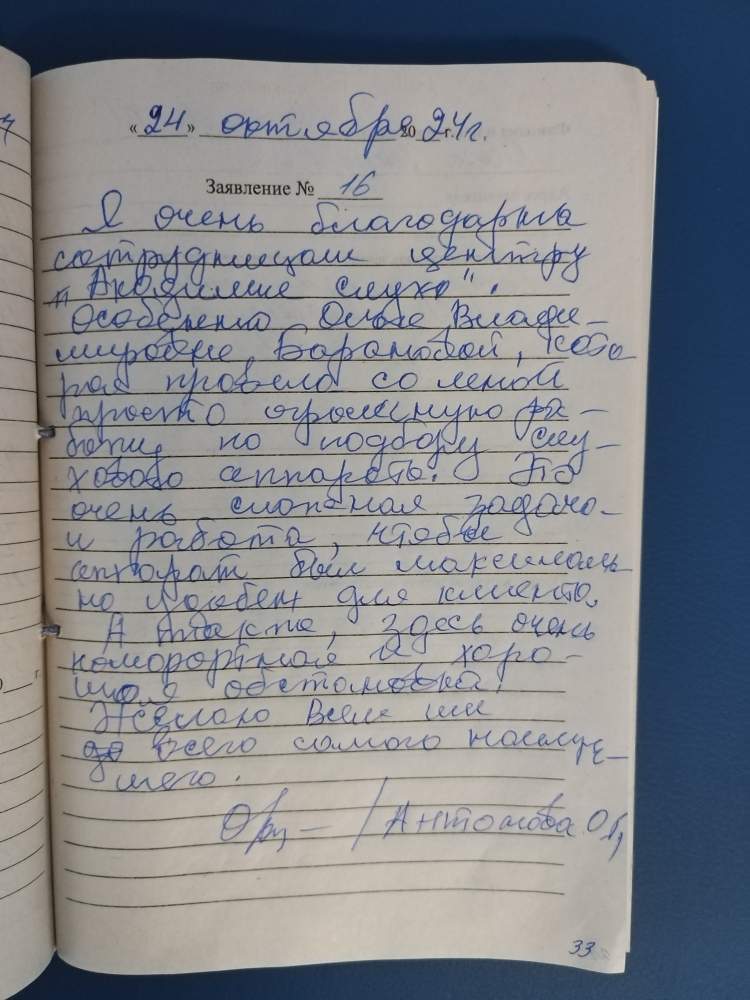 « 24 » октября 20 24 г.
Заявление № 16
Я очень благодарна
сотрудницам центру
"Академие слуха".
Особенно Ольге Влади-
мировне Барановой, кото
рая провела со мной
просто огромную ра-
боту по подбору слу-
хового аппарата. Это
очень сложная задача
и работа, чтобы
аппарат был максималь
но удобен для клиента.
А также, здесь очень
комфортная и хоро-
шая обстановка.
Желаю Всем
всего самого наилуч-
шего.
/Антонова О
33